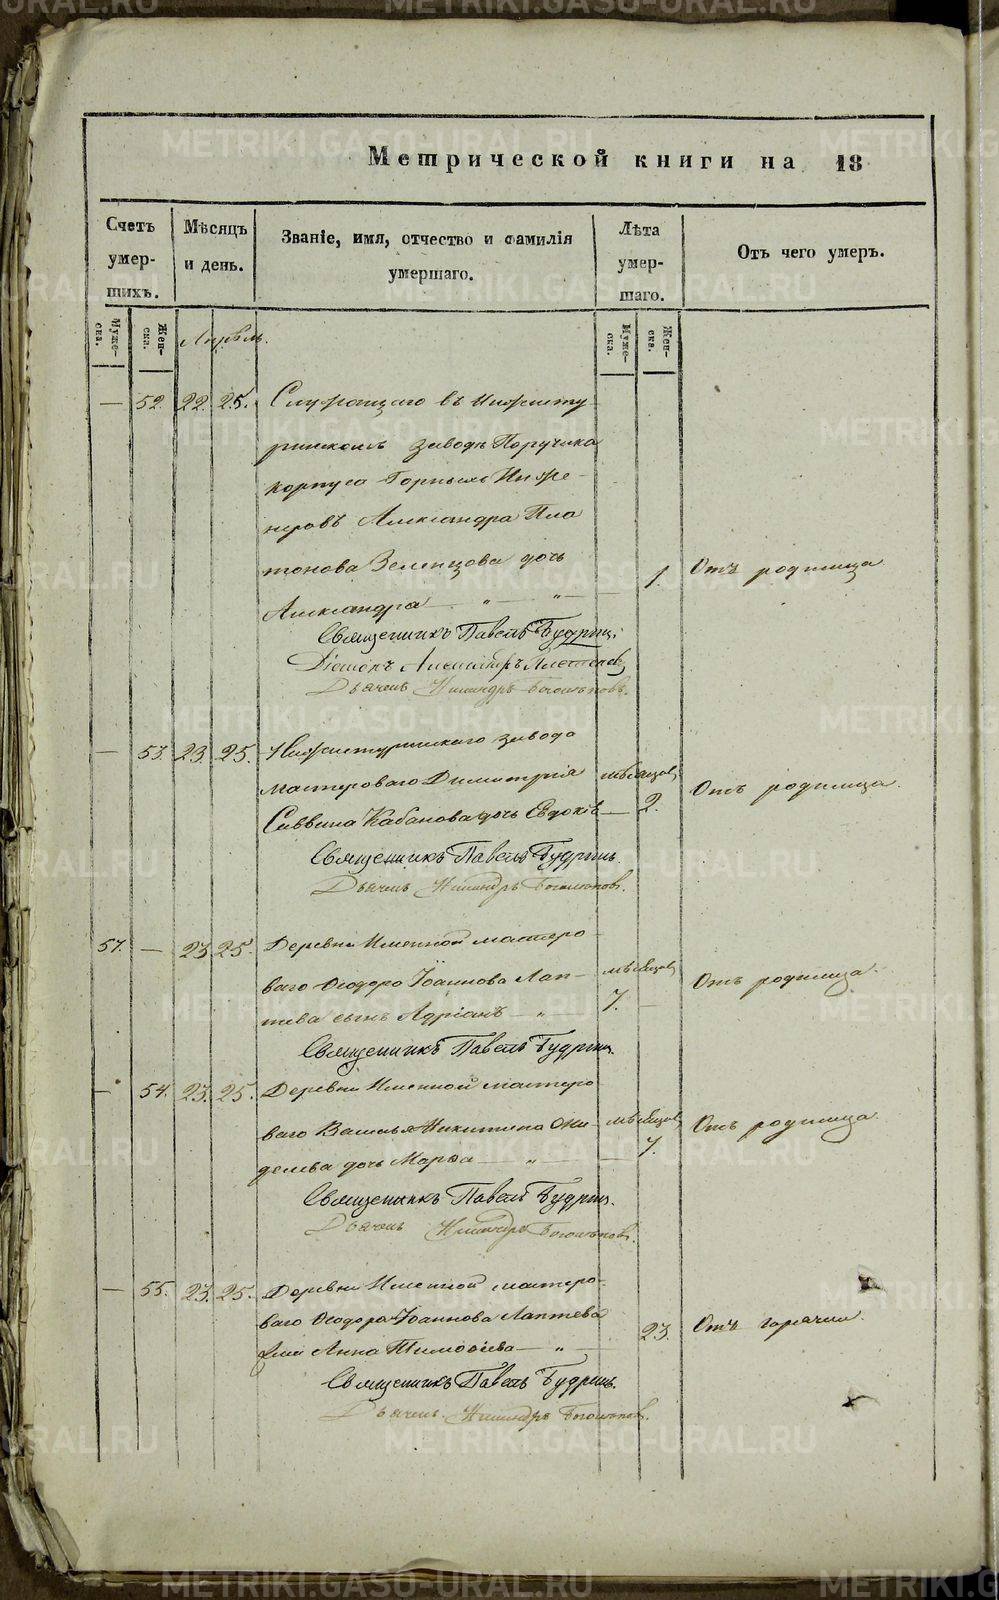 METRIKI.GASO-URAL.RU
Метрической книги на 18
Счетъ умер- шихъ.
Мѣсяцъ и день.
Званіе, имя, отчество и фамилія умершаго.
Лѣта умер- шаго.
Отъ чего умеръ.
Муже- ска.
Жен- ска.
Муже- ска.
Жен- ска.
Апрѣль.
— 52. 22. 25. Служащаго въ Нижнету
ринскомъ заводѣ Поручика
корпуса Горныхъ Инже-
неровъ Александра Пла
тонова Зеленцова дочь
1. Отъ родимца
Александра — „ — „ —
Священникъ Павелъ Будринъ.
Діаконъ Александръ
Дьячекъ
— 53. 23. 25. Нижнетуринскаго завода
мастероваго Димитрія мѣсяцовъ
Саввина Кабанова дочь Евдокія — 2. Отъ родимца.
Священникъ Павелъ Будринъ.
Дьячекъ
57. — 23 25. Деревни Именной мастеро-
ваго Ѳеодора Іоаннова Лап- мѣсяцовъ
тева сынъ Адріанъ — „ — 7. — Отъ родимца.
Священникъ Павелъ Будринъ.
— 54. 23. 25. Деревни Именной мастеро-
ваго Василья Никитина мѣсяцовъ
дочь Марѳа — „ — 7. Отъ родимца.
Священникъ Павелъ Будринъ.
Дьячекъ
— 55. 23. 25. Деревни Именной мастеро-
ваго Ѳеодора Іоаннова Лаптева
Анна Тимоѳіева — „ — 23. Отъ горячки.
Священникъ Павелъ Будринъ.
Дьячекъ